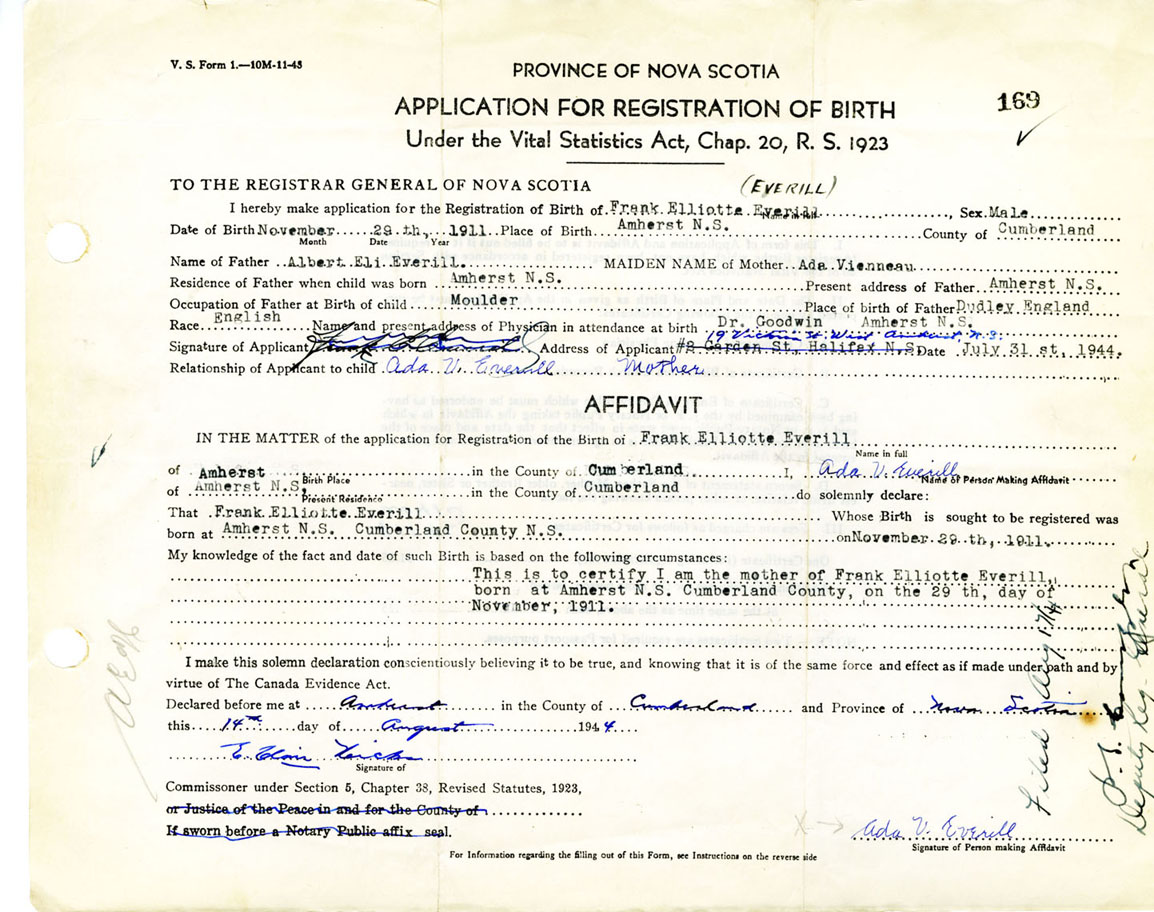 V. S. Form 1.—10M-11-43
PROVINCE OF NOVA SCOTIA
APPLICATION FOR REGISTRATION OF BIRTH
169
Under the Vital Statistics Act, Chap. 20, R. S. 1923
TO THE REGISTRAR GENERAL OF NOVA SCOTIA
(EVERILL)
I hereby make application for the Registration of Birth of Frank Elliotte Everill, Sex Male
Name in full
Date of Birth November 29 th, 1911. Place of Birth Amherst N.S. County of Cumberland
Month Date Year
Name of Father Albert Eli Everill. MAIDEN NAME of Mother Ada Vienneau
Residence of Father when child was born Amherst N.S. Present address of Father Amherst N.S.
Occupation of Father at Birth of child Moulder Place of birth of Father Dudley England
Race English Name and present address of Physician in attendance at birth Dr. Goodwin Amherst N.S.
19 Victoria St. West Amherst N.S.
Signature of Applicant Address of Applicant #2 Garden St., Halifax N.S. Date July 31 st. 1944.
Relationship of Applicant to child Ada V. Everill Mother
AFFIDAVIT
IN THE MATTER of the application for Registration of the Birth of Frank Elliotte Everill
Name in full
of Amherst in the County of Cumberland I, Ada V. Everill
Birth Place Name of Person Making Affidavit
of Amherst N.S. in the County of Cumberland do solemnly declare:
Present Residence
That Frank Elliotte Everill Whose Birth is sought to be registered was
born at Amherst N.S. Cumberland County N.S. on November 29 th, 1911.
My knowledge of the fact and date of such Birth is based on the following circumstances:
This is to certify I am the mother of Frank Elliotte Everill,
born at Amherst N.S. Cumberland County, on the 29 th, day of
November, 1911.
I make this solemn declaration conscientiously believing it to be true, and knowing that it is of the same force and effect as if made under oath and by
virtue of The Canada Evidence Act.
Declared before me at Amherst in the County of Cumberland and Province of Nova Scotia
this 14th day of August 1944
Signature of
Commissoner under Section 5, Chapter 38, Revised Statutes, 1923,
or Justice of the Peace in and for the County of
If sworn before a Notary Public affix seal.
X → Ada V. Everill
Signature of Person making Affidavit
For Information regarding the filling out of this Form, see Instructions on the reverse side
Filed Aug 17/44
Deputy Reg. General